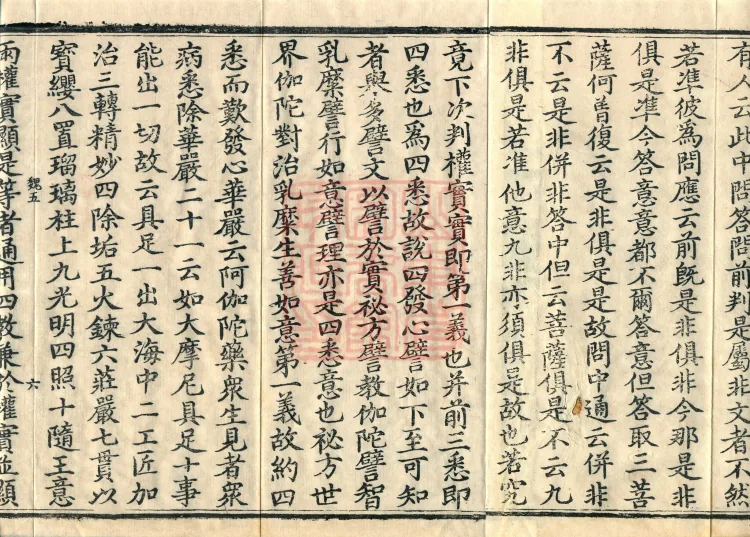 有人云此中問答問前判是屬非文者不然
若準彼為問應云前既是非俱非今那是非
俱是準今答意意都不爾答意但答取三菩
薩何曾復云是非俱是是故問中通云併非
不云是非併非答中但云菩薩俱是不云九
非俱是若准他意九非亦須俱是故也若究
竟下次判權實實即第一義也并前三悉即
四悉也為四悉故說四發心譬如下至可知
者舉多譬文以譬於實祕方譬教伽陀譬智
乳糜譬行如意譬理亦是四悉意也祕方世
界伽陀對治乳糜生善如意第一義故約四
悉而歎發心華嚴云阿伽陀藥眾生見者眾
病悉除華嚴二十一云如大摩尼具足十事
能出一切故云具足一出大海中二工匠加
治三轉精妙四除垢五火鍊六莊嚴七貫以
寶纓八置瑠璃柱上九光明四照十隨王意
魏五 六
雨權實顯是等者通用四教兼於權實並顯